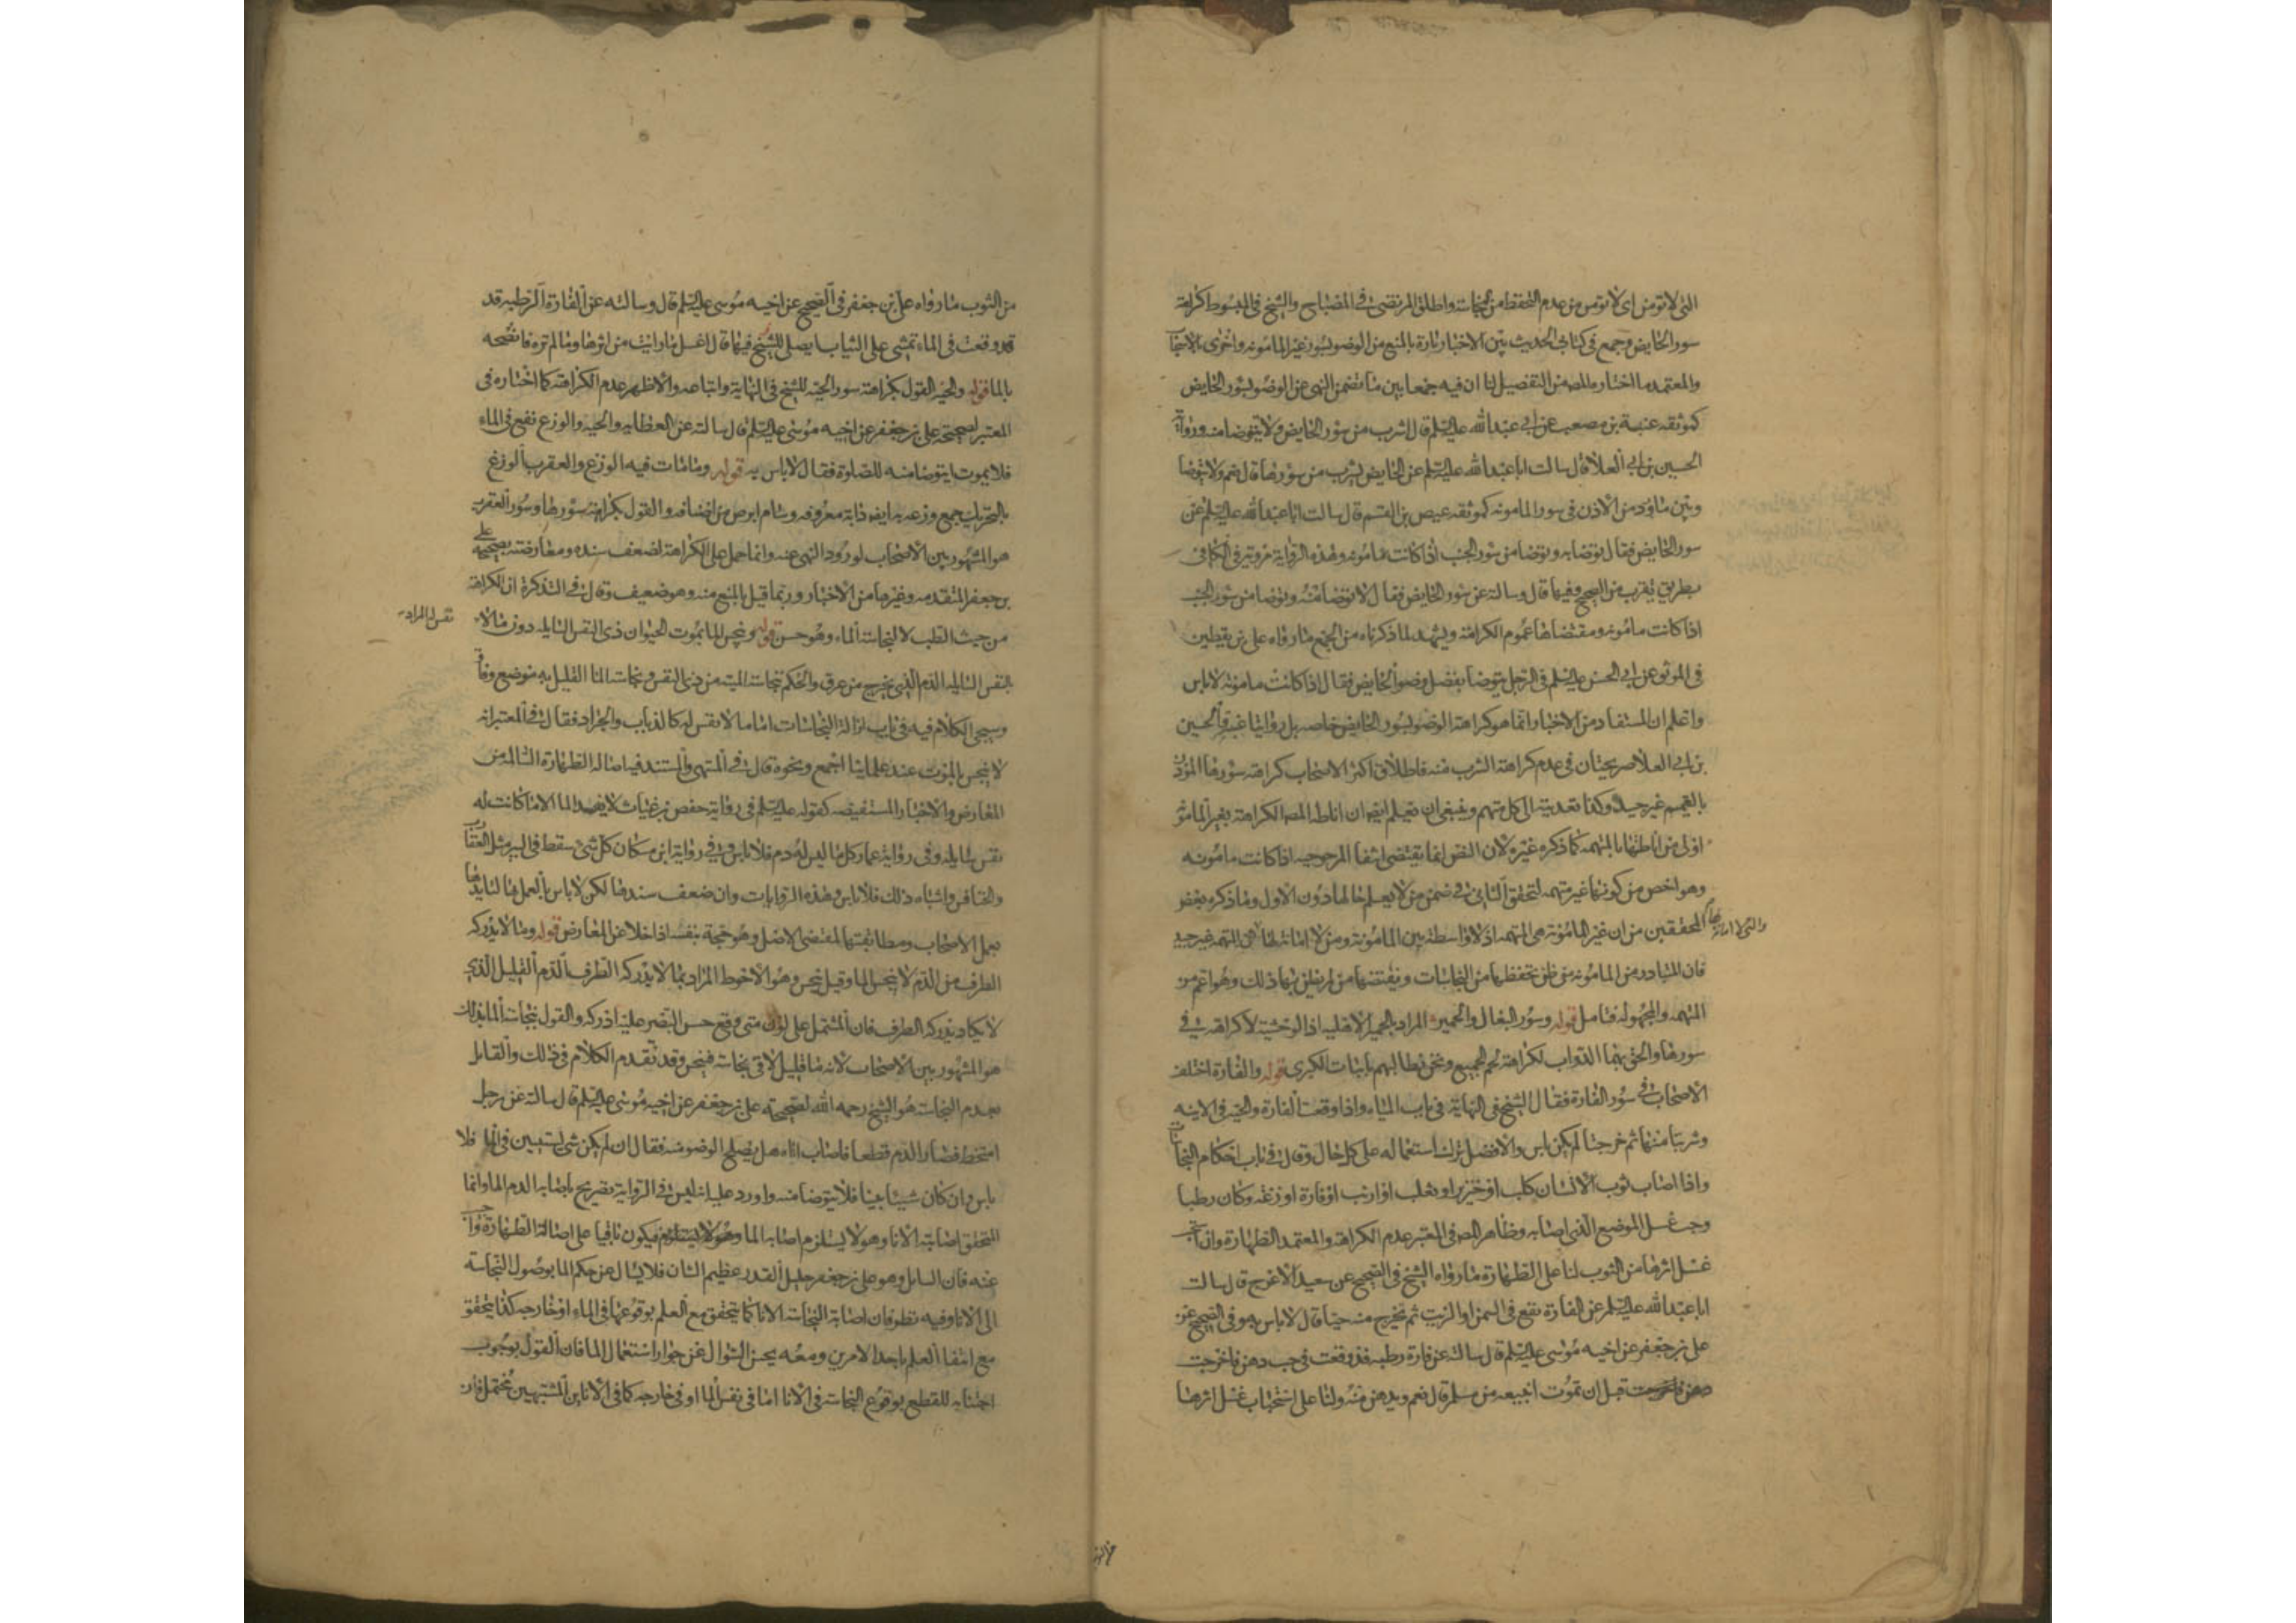 التى لا تومن اى لا تومن من عدم التحفظ من النجاسة واطلق المرتضى فى المصباح والشيخ فى المبسوط كراهة
سور الحايض وجمع فى كتابى الحديث بين الاخبار تارة بالمنع من الوضو بسور غير المامونه واخرى بالاستحباب
والمعتمد ما اختاره المص من التفصيل لنا ان فيه جمعا بين ما تضمن النهى عن الوضو بسور الحايض
كموثقه عنبسة بن مصعب عن ابى عبد الله عليه السلم قال اشرب من سور الحايض ولا يتوضا منه ورواية
الحسين بن ابى العلا قال سالت ابا عبد الله عليه السلم عن الحايض يشرب من سورها قال نعم ولا يتوضا
وبين ما ورد من الاذن فى سور المامونه كموثقه عيص بن القسم قال سالت ابا عبد الله عليه السلم عن
سور الحايض فقال توضا به وتوضا من سور الجنب اذا كانت مامونه وهذه الرواية مروية فى الكافى
بطريق يقرب من الصحيح وفيها قال وسالته عن سور الحايض فقال لا توضا منه وتوضا من سور الجنب
اذا كانت مامونه ومقتضاها عموم الكراهة ويشهد لما ذكرناه من الجمع ما رواه على بن يقطين
فى الموثق عن ابى الحسن عليه السلم فى الرجل يتوضا بفضل وضو الحايض فقال اذا كانت مامونه لا باس
واعلم ان المستفاد من الاخبار انما هو كراهة الوضو بسور الحايض خاصه بل روايتا عنبسة والحسين
بن ابى العلا صريحتان فى عدم كراهة الشرب منه فاطلاق اكثر الاصحاب كراهة سورها المؤذن
بالتعميم غير جيد وكذا تعديته الى كل متهم وينبغى ان يعلم ايضا ان اناطة المص الكراهة بغير المامونه
اولى من اناطتها بالمتهمه كما ذكره غيره لان النص انما يقتضى انتفا المرجوحيه اذا كانت مامونه
وهو اخص من كونها غير متهمه لتحقق الثانى فى ضمن من لا يعلم حالها دون الاول وما ذكره بعض
المحققين من ان غير المامونة هى المتهمه اذ لا واسطة بين المامونة ومن لا امانة لها والتى لا امانة لها هى المتهمه غير جيد
فان المتبادر من المامونه من ظن تحفظها من النجاسات ونقيضها من لم يظن بها ذلك وهو اعم من
المتهمه والمجهوله فتامل قوله وسور البغال والحمير المراد بالحمير الاهلية اذ الوحشية لا كراهة فى
سورها والحق بهما الدواب لكراهة لحم الجميع ونحن نطالبهم باثبات الكبرى قوله والفارة اختلف
الاصحاب فى سور الفارة فقال الشيخ فى النهاية فى باب المياه واذا وقعت الفارة والحية فى الانيه
وشربتا منها ثم خرجتا لم يكن باس والافضل ترك استعماله على كل حال وقال فى باب احكام النجاسات
واذا اصاب ثوب الانسان كلب او خنزير او ثعلب او ارنب او فارة او وزغه وكان رطبا
وجب غسل الموضع الذى اصابه وظاهر المص فى المعتبر عدم الكراهة والمعتمد الطهارة وان استحب
غسل اثرها من الثوب لنا على الطهارة ما رواه الشيخ فى الصحيح عن سعيد الاعرج قال سالت
ابا عبد الله عليه السلم عن الفارة تقع فى السمن او الزيت ثم تخرج منه حيا قال لا باس به وفى الصحيح عن
على بن جعفر عن اخيه موسى عليه السلم قال سالته عن فارة رطبه قد وقعت فى حب دهن فاخرجت
قبل ان تموت ابيعه من مسلم قال نعم ويدهن منه ولنا على استحباب غسل اثرها
من الثوب
من الثوب ما رواه على بن جعفر فى الصحيح عن اخيه موسى عليه السلم قال وسالته عن الفارة الرطبه قد
قد وقعت فى الماء تمشى على الثياب ايصلى فيها قال اغسل ما رايت من اثرها وما لم تره فانضحه
بالما قوله والحية القول بكراهة سور الحية للشيخ فى النهاية واتباعه والاظهر عدم الكراهة كما اختاره فى
المعتبر لصحيحة على بن جعفر عن اخيه موسى عليه السلم قال سالته عن العظايه والحيه والوزغ تقع فى الماء
فلا يموت ايتوضا منه للصلوة فقال لا باس به قوله وما مات فيه الوزغ والعقرب الوزغ
بالتحريك جمع وزغه به ايضا دابة معروفه وسام ابرص من اصنافه والقول بكراهة سورها وسور العقرب
هو المشهور بين الاصحاب لورود النهى عنه وانما حمل على الكراهة لضعف سنده ومعارضته بصحيحة على
بن جعفر المتقدمه وغيرها من الاخبار وربما قيل بالمنع منه وهو ضعيف وقال فى التذكرة ان الكراهة
من حيث الطب لا لنجاسة الماء وهو حسن قوله وينجس الما بموت الحيوان ذى النفس السايله دون ما لا نفس له المراد
بالنفس السايله الدم الذى يخرج من عرق والحكم بنجاسة الميته من ذى النفس ونجاسة الما القليل به موضع وفاق
وسيجى الكلام فيه فى باب ازالة النجاسات اما ما لا نفس له كالذباب والجراد فقال فى المعتبر انه
لا ينجس بالموت عند علماينا اجمع ونحوه قال فى المنتهى والمستند فيه اصالة الطهارة السالمه من
المعارض والاخبار المستفيضه كقوله عليه السلم فى رواية حفص بن غياث لا يفسد الما الا ما كانت له
نفس سايله وفى رواية عمار كل ما ليس له دم فلا باس وفى رواية ابن مسكان كل شى سقط فى البير مثل العقارب
والخنافس واشباه ذلك فلا باس وهذه الروايات وان ضعف سندها لكن لا باس بالعمل بها لتايدها
بعمل الاصحاب ومطابقتها لمقتضى الاصل وهو حجة بنفسه اذا خلا عن المعارض قوله وما لا يدركه
الطرف من الدم لا ينجس الما وقيل ينجس وهو الاحوط المراد بما لا يدركه الطرف الدم القليل الذى
لا يكاد يدركه الطرف فان المشتمل على لون متى وقع حس البصر عليه ادركه والقول بنجاسة الما بذلك
هو المشهور بين الاصحاب لانه ما قليل لاقى نجاسة فينجس وقد تقدم الكلام فى ذلك والقايل
بعدم النجاسة هو الشيخ رحمه الله لصحيحة على بن جعفر عن اخيه موسى عليه السلم قال سالته عن رجل
امتخط فصار الدم قطعا فاصاب اناه هل يصلح الوضو منه فقال ان لم يكن شى يستبين فى الما فلا
باس وان كان شييا بينا فلا يتوضا منه واورد عليه انه ليس فى الرواية تصريح باصابة الدم الما وانما
المتحقق اصابته الانا وهو لا يستلزم اصابة الما فيكون باقيا على اصالة الطهارة واجيب
عنه فان السايل وهو على بن جعفر جليل القدر عظيم الشان فلا يسال عن حكم الما بوصول النجاسة
الى الانا وفيه نظر فان اصابة النجاسة الانا كما يتحقق مع العلم بوقوعها فى الماء او خارجه كذا يتحقق
مع انتفا العلم باحد الامرين ومعه يحسن السوال عن جواز استعمال الما فان القول بوجوب
اجتنابه للقطع بوقوع النجاسة فى الانا اما فى نفس الما او فى خارجه كما فى الاناين المشتبهين محتمل فان